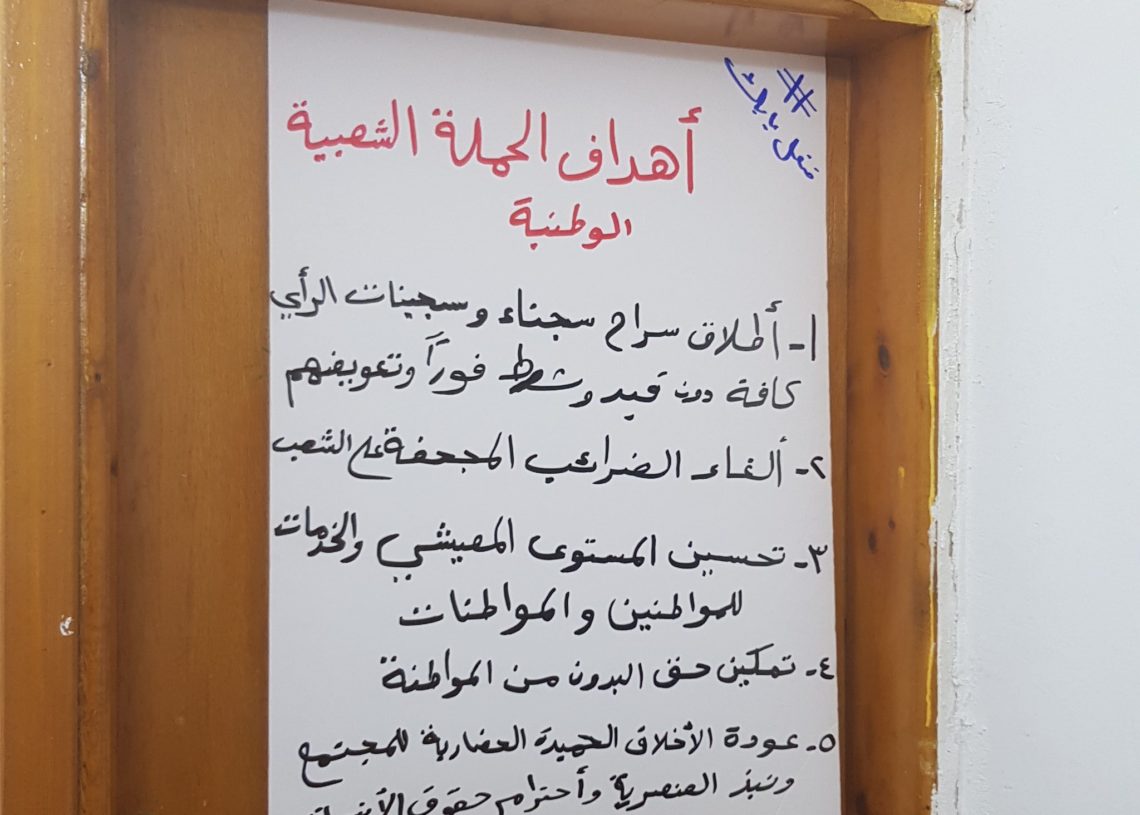 #
أهداف الحملة الشعبية
الوطنية
1- أطلاق سراح سجناء و سجينات الرأي
كافة دون قيد وشرط فوراً وتعويضهم
٢- ألغاء الضرائب المجحفة على الشعب
٣- تحسين المستوى المعيشي والخدمات
للمواطنين والمواطنات
٤- تمكين حق البدون من المواطنة
٥- عودة الأخلاق الحميدة الحضارية للمجتمع
ونبذ العنصرية وأحترام حقوق